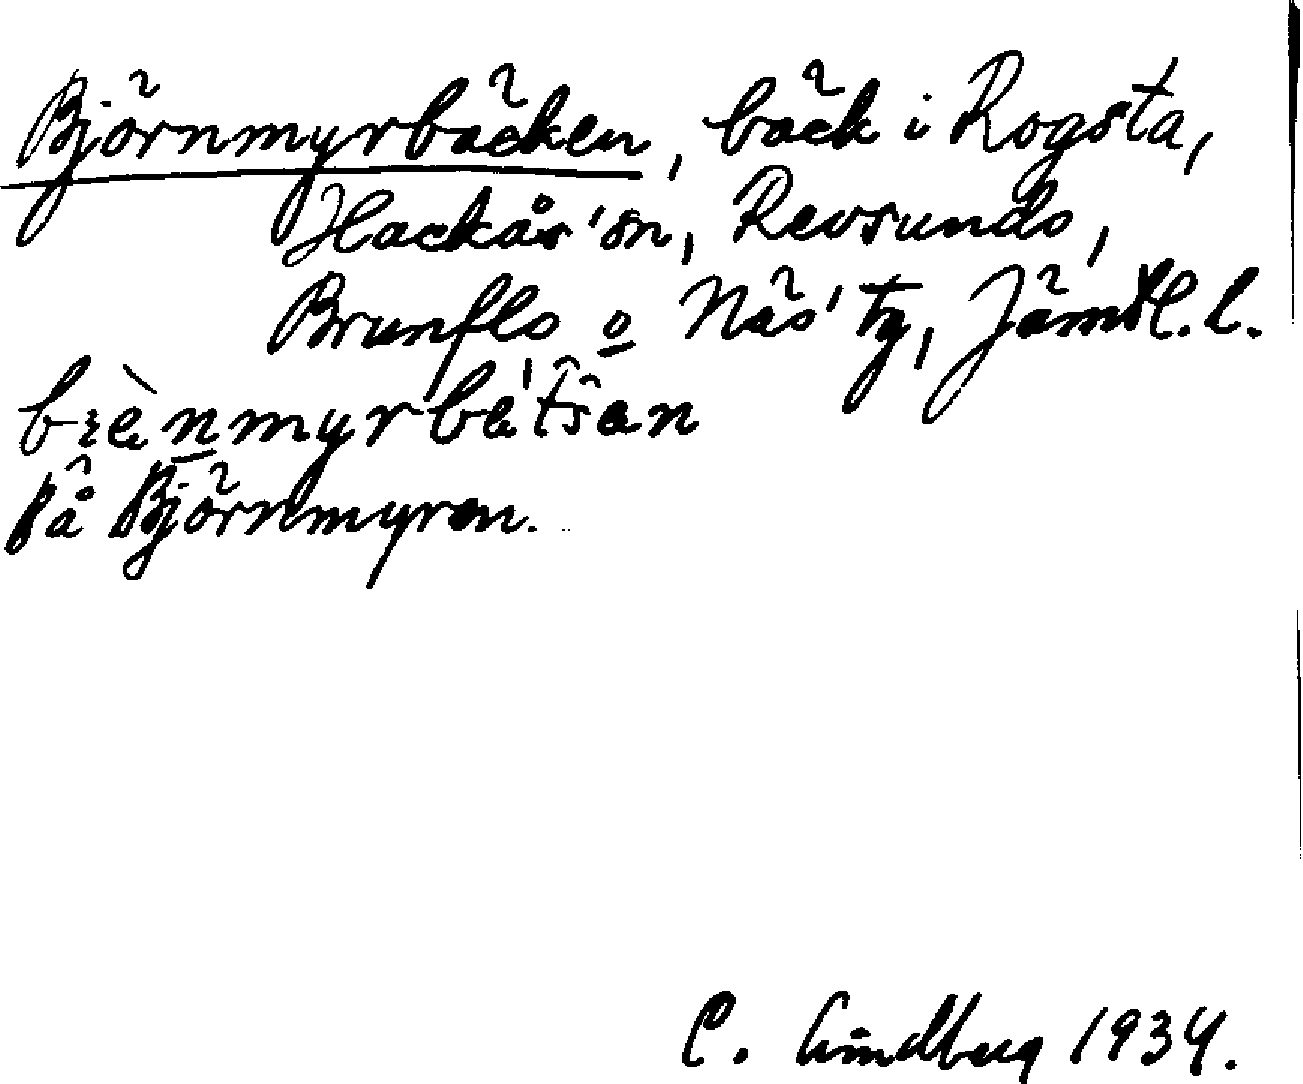 Björnmyrbäcken, bäck i Rogsta,
Hackås' sn, Revsunds,
Brunflo o Näs' tg, Jämtl. l.
På Björnmyren.
C. Lindberg 1934.